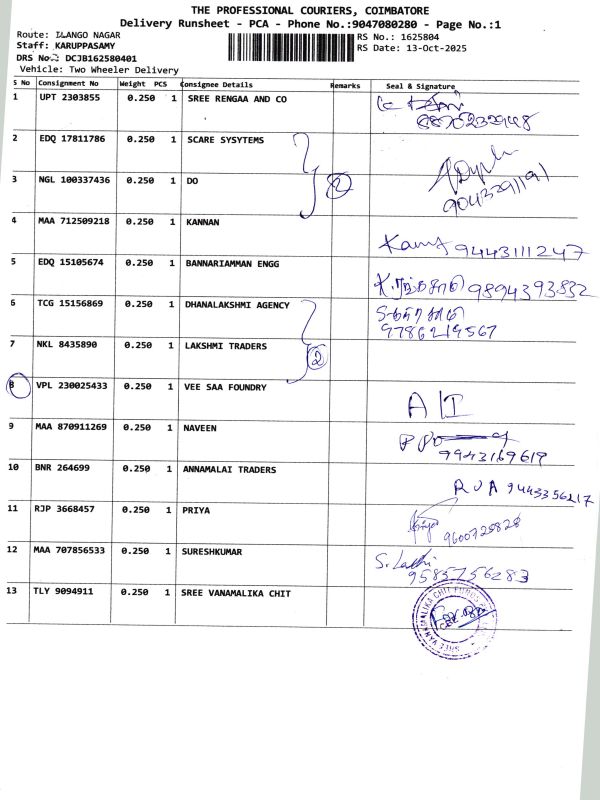 THE PROFESSIONAL COURIERS, COIMBATORE
Delivery Runsheet - PCA - Phone No.:9047080280 - Page No.:1
Route: ILANGO NAGAR
RS No.: 1625804
Staff: KARUPPASAMY
RS Date: 13-Oct-2025
DRS No.: DCJB162580401
Vehicle: Two Wheeler Delivery
S No Consignment No Weight PCS Consignee Details Remarks Seal & Signature
1 UPT 2303855 0.250 1 SREE RENGAA AND CO
2 EDQ 17811786 0.250 1 SCARE SYSYTEMS
3 NGL 100337436 0.250 1 DO 2
9043291191
4 MAA 712509218 0.250 1 KANNAN
9443111247
5 EDQ 15105674 0.250 1 BANNARIAMMAN ENGG
9894393832
6 TCG 15156869 0.250 1 DHANALAKSHMI AGENCY
9786219567
7 NKL 8435890 0.250 1 LAKSHMI TRADERS 2
8 VPL 230025433 0.250 1 VEE SAA FOUNDRY
9 MAA 870911269 0.250 1 NAVEEN
9943169619
10 BNR 264699 0.250 1 ANNAMALAI TRADERS
9443356217
11 RJP 3668457 0.250 1 PRIYA
9600725828
12 MAA 707856533 0.250 1 SURESHKUMAR
9585756283
13 TLY 9094911 0.250 1 SREE VANAMALIKA CHIT